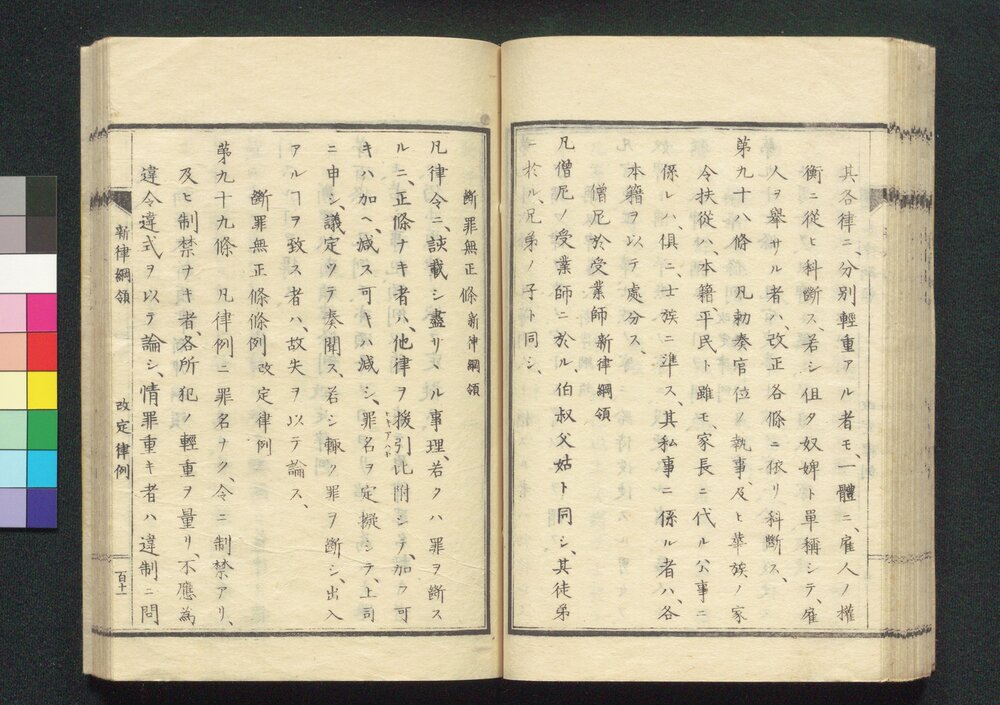 其各律ニ、分別輕重アル者モ、一體ニ、雇人ノ權
衡ニ從ヒ科斷ス、若シ但タ奴婢ト單稱シテ、雇
人ヲ舉サル者ハ、改正各條ニ依リ科斷ス、
第九十八條　凡勅奏官位ノ執事、及ヒ華族ノ家
令扶從ハ、本籍平民ト雖モ、家長ニ代ル公事ニ
係ルハ、俱ニ、士族ニ準ス、其私事ニ係ル者ハ、各
本籍ヲ以テ處分ス、
僧尼於受業師 新律綱領
凡僧尼ノ受業師ニ於ル伯叔父姑ト同シ、其徒弟
ニ於ル、兄弟ノ子ト同シ、
斷罪無正條 新律綱領
凡律令ニ、該載シ盡サヽル事理、若クハ罪ヲ斷ス
ルニ、正條ナキ者ハ、他律ヲ援引比附シテ、加フ可
キハ加ヘ、減ス可キハ減シ、罪名ヲ定擬シテ、上司
ニ申シ、議定ツテ奏聞ス、若シ輙ク罪ヲ斷シ、出入
アルヿヲ致ス者ハ、故失ヲ以テ論ス、
斷罪無正條條例 改定律例
第九十九條　凡律例ニ罪名ナク、令ニ制禁アリ、
及ヒ制禁ナキ者、各所犯ノ輕重ヲ量リ、不應為
違令違式ヲ以テ論シ、情罪重キ者ハ違制ニ問
新律綱領　改定律例　百十一